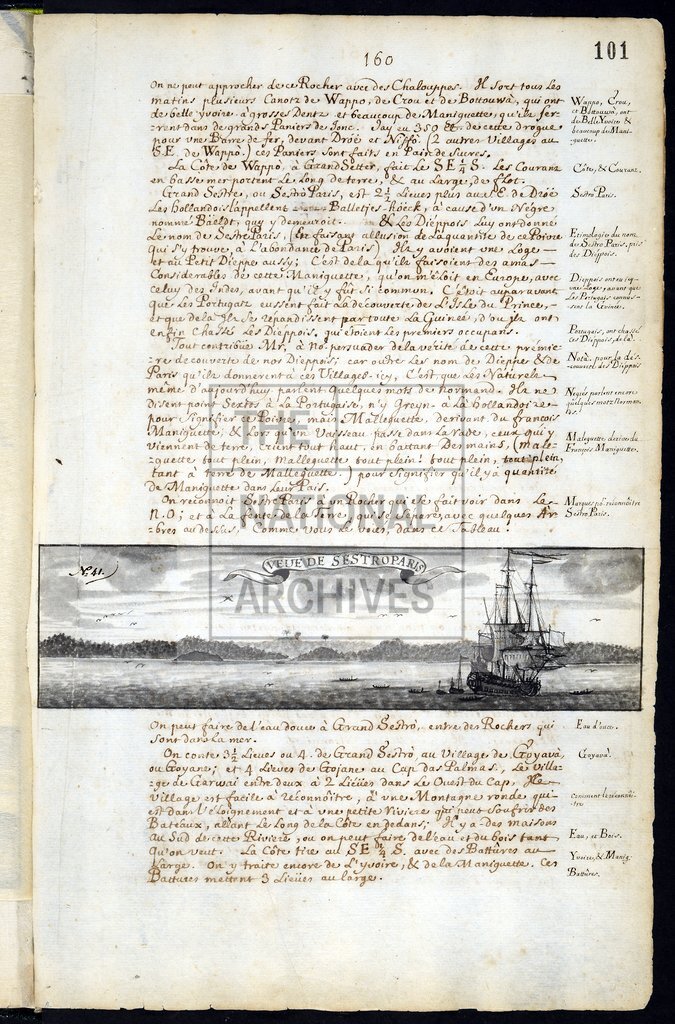 160
101
On ne peut approcher de ce Rocher avec des Chalouppes. Il sort tous les
matins plusieurs Canotz de Wappo, de Crou et de Bottouwa, qui ont
de belle yvoire, à grosses Dentz et beaucoup de Maniguette, qu'ils ser-
rent dans de grands Paniers de Jonc. Jay eu 350 de cette drogue
pour une Barre de fer, devant Dròè et Niffò. (2 autres Villages au
S.E. de Wappo) ces Paniers sont faits en Pain de Sucre.
La Côte de Wappo, à Grand Setter, fait Le SE ¼ S. Les Courans
en basse mer portent Le Long de terre, & au Large, de flot.
Grand Sestre, ou Sestrò Paris, est 2½ Lieues plus au S.E. de Dròè
Les hollandois l'appellent Balletjes-höeck, à cause d'un Nègre
nommé Bàeldt, quy y demeuroit. & Les Dieppois Luy ont donné
Le nom de Sestre Paris, (En faisant allusion de la quantité de ce Poivre
qui s'y trouve, à L'abondance de Paris) Ils y avoient une Loge,
et au Petit Dieppe aussy; C'est de là qu'ils faisoient des amas
Considerables de cette Maniguette, qu'on mêloit en Europe, avec
celuy des Indes, avant qu'il y fût si commun. C'étoit auparavant
que Les Portugaiz eussent fait La découverte de L'Isle du Prince,
et que de là Ils se répandissent par toute La Guinée, d'ou Ilz ont
enfin chassé Les Dieppois, qui étoient les premiers occupans.
Tout contribüe Mr, à vous persuader de la verité de cette prémie-
re decouverte de nos Dieppois; car outre Les nom de Dieppe & de
Paris qu'ils donnerent à ces Villages-icy, C'est que Les Naturels
même d'aujourd'huy parlent quelques mots de Normand. Ils ne
disent point Sextos à La Portugaise, n'y Greyn à La hollandoise
pour signifier ce Poivre, mais Malleguette, derivant du françois
Maniguette, & Lors qu'un Vaisseau passe dans La rade, ceux qui y
viennent de terre, crient tout haut, en battant Des mains, (malle-
guette tout plein, Malleguette tout plein! tout plein, tout plein,
tant à terre de Malleguette.) pour signifier qu'il y a quantité
de Maniguette dans Leur Païs.
On reconnoit Sestre Paris à un Rocher, qu'elle fait voir dans Le
N.O; et à La pente de la Terre, qui se separe, avec quelques Ar-
bres au dessus, Comme vous Le voiez, dans ce Tableau.
Wappo, Crou,
et Bottouwa, ont
de Belle Yvoire &
beaucoup de Mani-
guette.
Côte, & Courans.
Sestre Paris.
Etimologie du nom
de Sestro Paris, pris
des Dieppois.
Dieppois ont eu icy
une Loge, avant que
Les Portugais connus-
sent La Guinée.
Portugais, ont chassé
Les Dieppois, de là.
Notà, pour la dé-
couverte des Dieppois
Nègres parlent encore
quelques mots Norman-
Maleguette, derive du
François Maniguette.
Marques p.r reconnoître
Sestre Paris.
THE
NATIONAL
ARCHIVES
No. 41.
VEUE DE SESTRO PARIS
On peut faire de l'eau douce à Grand Sestrò, entre des Rochers qui
sont dans la mer.
On conte 3½ Lieues ou 4 de Grand Sestrò, au Village de Gòyavà,
ou Goyane; et 4 Lieues de Gojane au Cap das Palmas, Le Villa-
ge de Garwai entre deux à 2 Lieües dans Le Ouest du Cap. Ce
Village est facile à réconnôitre, à une Montagne ronde, qui
est dans l'éloignement et à une petite Riviere qui peut soufrir des
Bateaux, allant Le Long de la Côte en dedans; Il y a des maisons
au Sud de cette Riviere, ou on peut faire de l'eau et du bois tant
qu'on veut. La Côte tire au SE ¼ S. avec des Battures au
Large. On y traite encore de L'yvoire, & de la Maniguette. Ces
Battures mettent 3 Lieües au large.
Eau douce.
Goyavà.
comment le réconnôi-
tre
Eau, et Bois.
Yvoire, & Manig.
Battures.